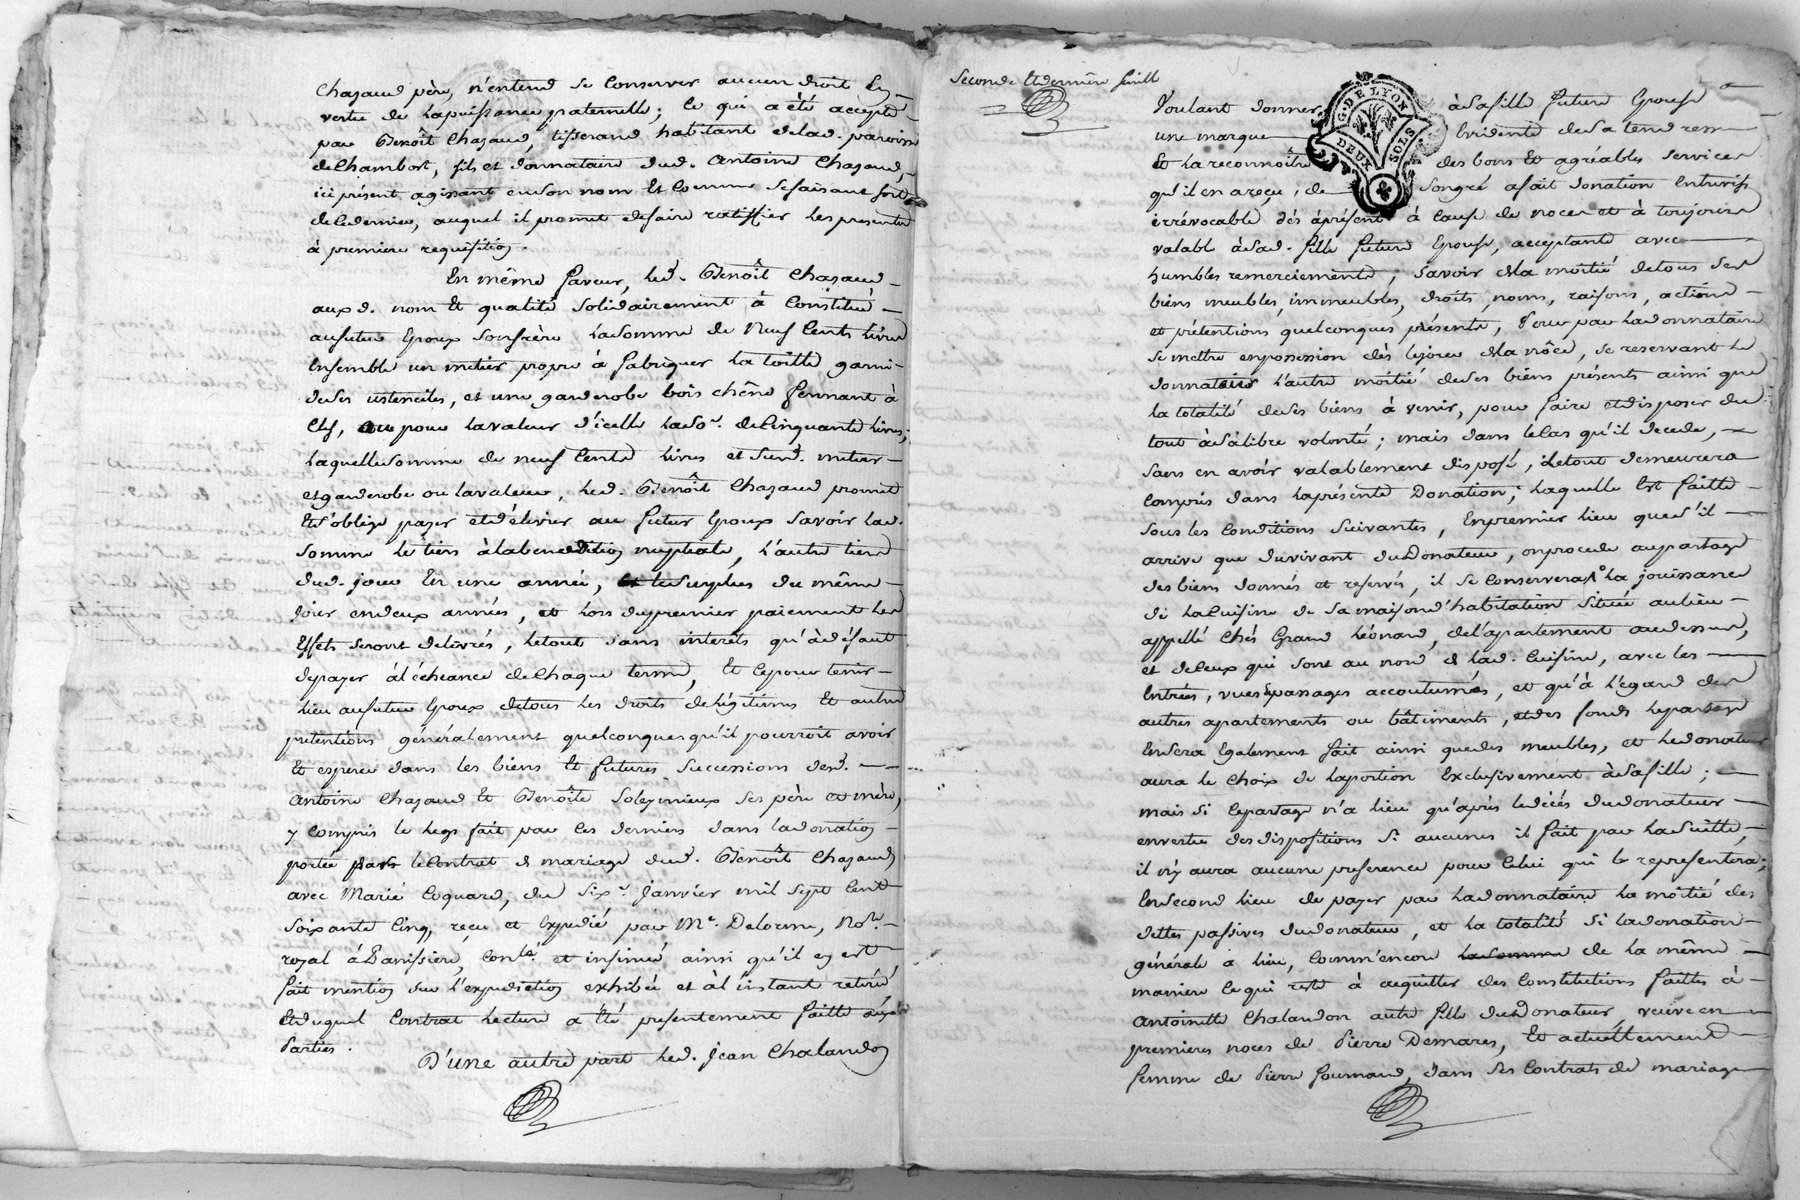 Chazaud père, n'entend se Conserver aucun droit En
vertu de la puissance paternelle; Ce qui a été accepté
par Benoît Chazaud, tisserand habitant de lad. paroisse
de Chambost, fils et donnataire dud. Antoine Chazaud,
ici présent agissant en son nom Et Comme se faisant fort
de Ce dernier, auquel il promet de faire ratiffier les presentes
à premiere requisition.
En même faveur, led. Benoît Chazaud
aux d. nom Et qualité solidairement à Constitué
au futur Epoux son frère la somme de Neuf Cents livres
Ensemble un métier propre à fabriquer la toille garni
de ses ustenciles, et une garderobe bois chêne fermant à
Clef, ou pour la valeur d'icelle la so.e de Cinquante livres;
laquelle somme de neuf Cents livres et susd. metier
et garderobe ou la valeur, led. Benoît Chazaud promet
Et s'oblige payer et délivrer au futur Epoux savoir lad.
somme le tiers à la benediction nuptiale, l'autre tiers
dud. jour En une année, et le surplus du même
jour en deux années, et lors du premier paiement les
Effets seront delivrés, le tout sans interêts qu'à défaut
de payer à l'écheance de Chaque terme, Et Ce pour tenir
lieu au futur Epoux de tous les droits de légitimes Et autres
pretentions généralement quelconques qu'il pourroit avoir
Et esperer dans les biens Et futures successions desd.
Antoine Chazaud Et Benoîte Solezimieux ses père et mère,
y Compris le legs fait par Ces derniers dans la donation
portée par le Contrat de mariage dud. Benoît Chazaud
avec Marie Coquard, du six Janvier mil sept Cent
soixante Cinq, reçu et Expedié par Me. Delorme, Nore.
royal à Panissiere, Conlé. et insinué ainsi qu'il en est
fait mention sur l'expedition exhibée et à l'instant retirée
Et duquel Contrat lecture a Eté presentement faitte aux
Parties.
D'une autre part led. Jean Chalandon
Seconde Et derniere feuille
G. DE LYON
DEUX SOLS
Voulant donner à sa fille future Epouse
une marque Evidente de sa tendresse
Et la reconnoître des bons Et agréables services
qu'il en a reçu, de son gré a fait donation Entrevifs
irrévocable dès àprésent à Cause de noces et à toujours
valable à sad. fille future Epouse, acceptante avec
humbles remerciements; savoir de la moitié de tous ses
biens meubles, immeubles, droits, noms, raisons, actions
et prétentions quelconques présents, Pour par la donnataire
se mettre en possession dès le jour de la nôce, se reservant le
donnateur l'autre moitié de ses biens présents ainsi que
la totalité de ses biens à venir, pour faire et disposer du
tout à sa libre volonté; mais dans le Cas qu'il decede,
sans en avoir valablement disposé, le tout demeurera
Compris dans la présente Donation; laquelle Est faitte
sous les Conditions suivantes, En premier lieu que s'il
arrive que du vivant du Donateur, on procede au partage
des biens donnés et reservés, il se Conservera 1° la jouissance
de la Cuisine de sa maison d'habitation située au lieu
appellé Chés Grand Léonard, de l'apartement au dessus,
et de Ceux qui sont au nord de lad. Cuisine, avec les
Entrées, vues & passages accoutumés, et qu'à l'égard des
autres apartements ou bâtiments, et des fonds le partage
En sera Egalement fait ainsi que des meubles, et le donateur
aura le Choix de la portion Exclusivement à sa fille;
mais si le partage n'a lieu qu'après le décés du donateur
en vertu des dispositions si aucunes il fait par la suitte,
il n'y aura aucune preference pour Celui qui le representera;
En second lieu de payer par la donnataire la moitié des
dettes passives du donateur, et la totalité si la donation
générale a lieu, Comm'encore de la même
maniere Ce qui reste à acquitter des Constitutions faittes à
Antoinette Chalandon autre fille du Donateur, veuve en
premieres noces de Pierre Demares, Et actuellement
femme de Pierre Journaud, dans ses Contrats de mariage